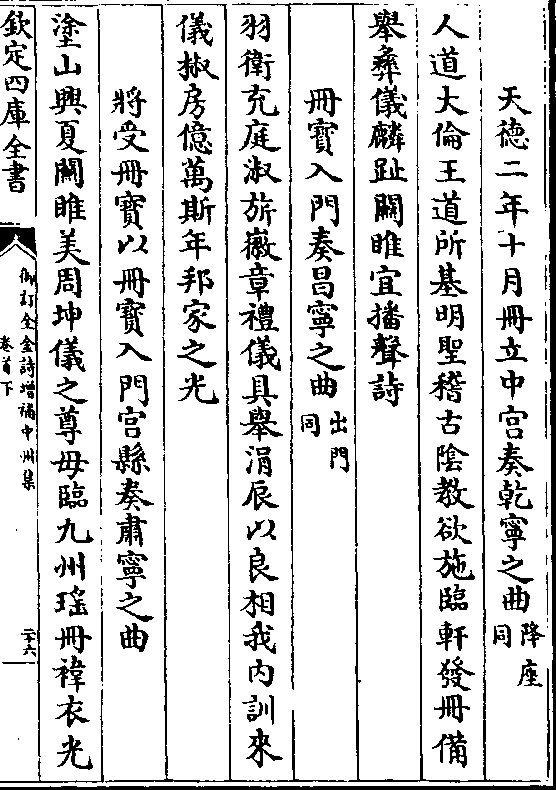 天德二年十月冊立中宫奏乾寧之曲降座同
人道大倫王道所基明聖稽古陰教欲施臨軒發冊備
舉彝儀麟趾關睢宜播聲詩
冊寶入門奏昌寧之曲出門同
羽衛充庭淑旂徽章禮儀具舉涓辰以良相我内訓來
儀椒房億萬斯年邦家之光
將受冊寶以冊寶入門宫縣奏肅寧之曲
塗山興夏關睢美周坤儀之尊母臨九州瑶冊褘衣光
欽定四庫全書
御訂全金詩增補中州集
卷首下
二十六